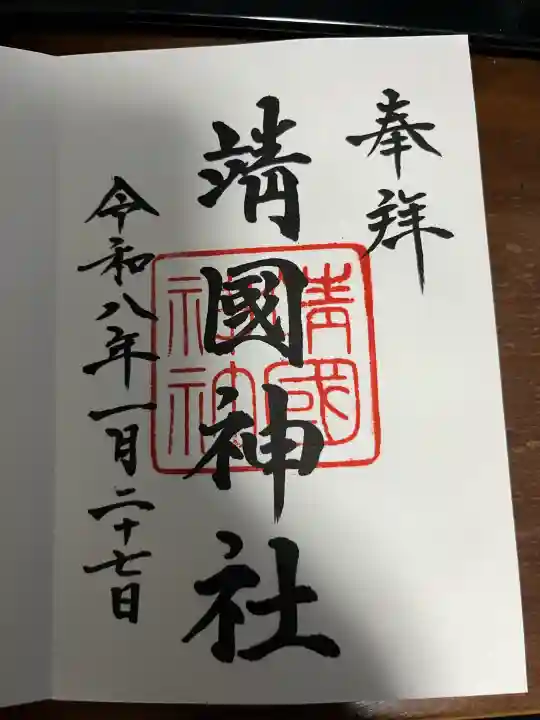 奉拝
靖國神社
靖國
神社
令和八年一月二十七日